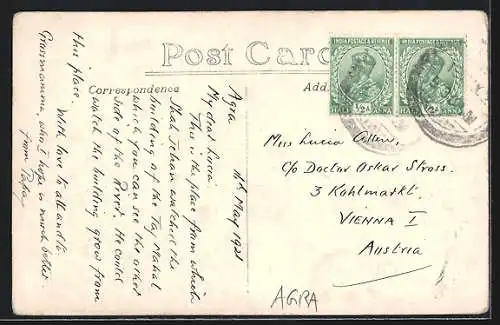 Post Card
Correspondence
Add
INDIA POSTAGE & REVENUE
INDIA POSTAGE & REVENUE
HALF ½A ANNA
HALF ½A ANNA
Agra
4th May 1921
My dear Lucia
This is the place from which
Shah Jehan watched the
building of the Taj Mahal
which you can see the other
side of the River. He could
watch the building grow from
this place.
With love to all and to
Grannmamma, who I hope is much better.
from Papa
Miss Lucia
c/o Doctor Oskar Stross.
3 Kohlmarkt.
VIENNA I
Austria
AGRA